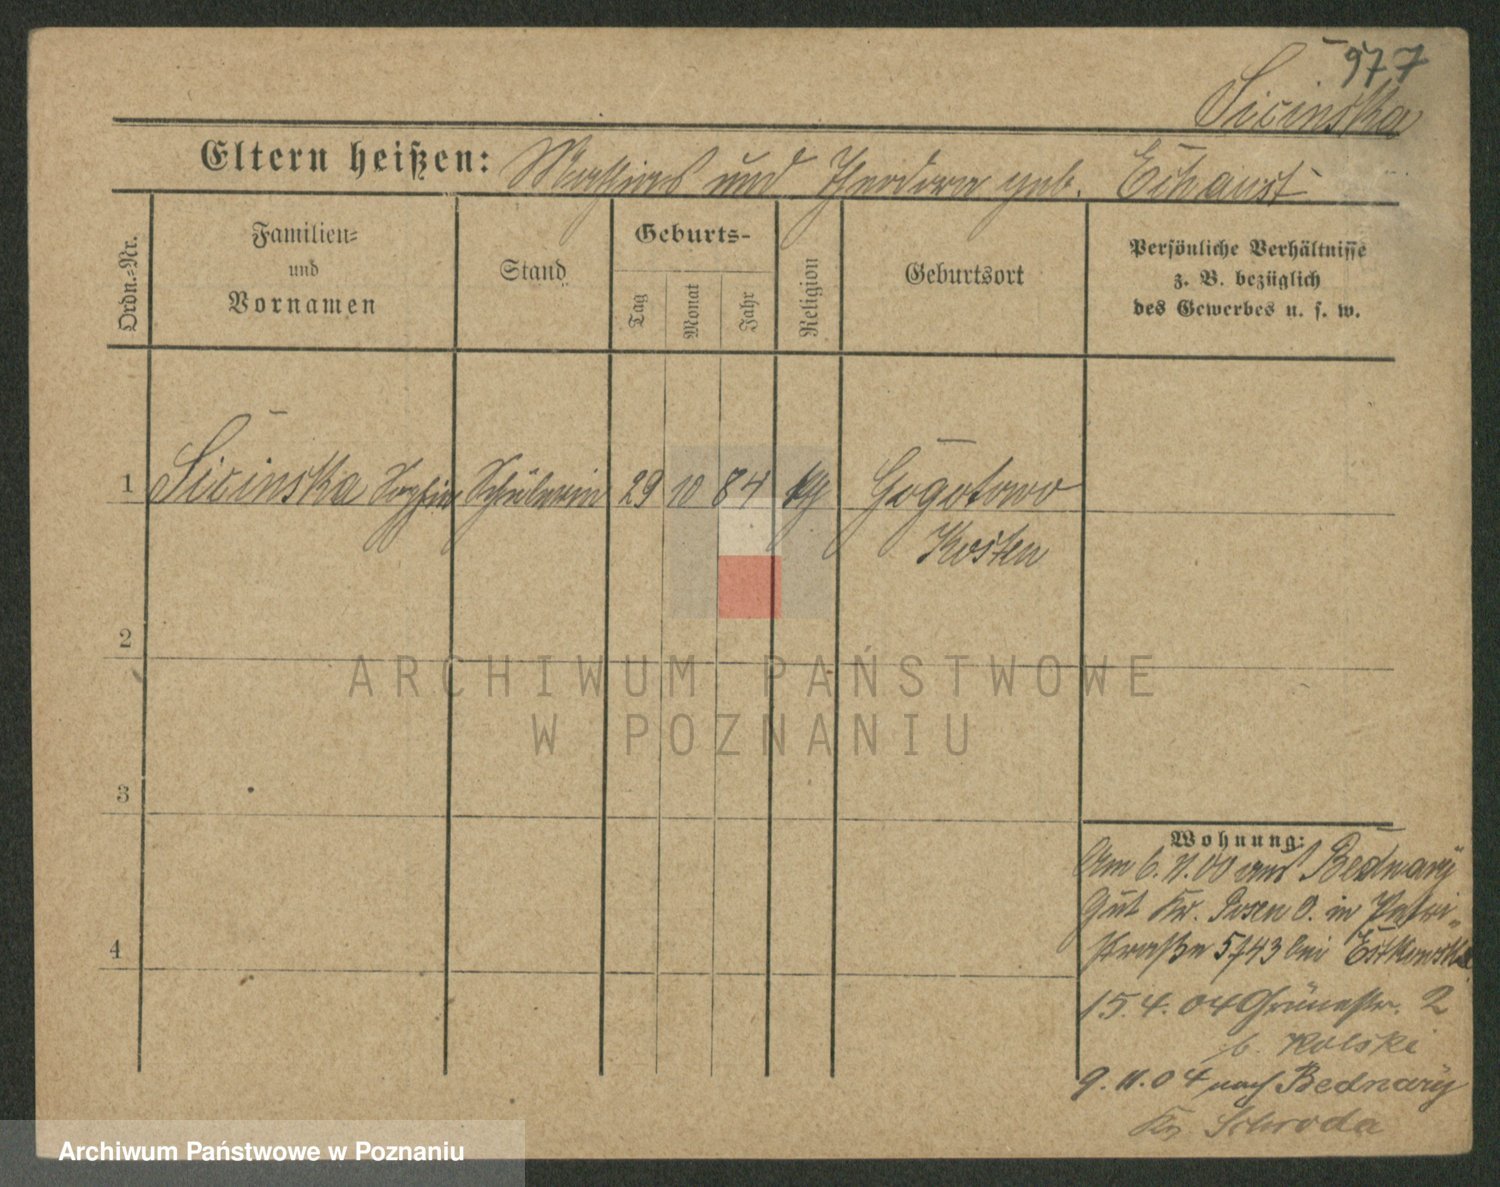 977
Sicinska
Eltern heißen: Mathias und Theodora geb. Echaust
Ordn.=Nr.
Familien=
und
Vornamen
Stand
Geburts-
Tag
Monat
Jahr
Religion
Geburtsort
Persönliche Verhältnisse
z. B. bezüglich
des Gewerbes u. s. w.
1 Sicinska Sophie Schülerin 29 10 84 kth Gogolewo
Kosten
2
3
4
Wohnung:
Am 6. 11. 00 aus Bednary
Gut Kr. Posen O. in Petri-
straße 5743 bei Estkowska
15. 4. 04 Grünestr. 2
b. Wolski
9. 11. 04 nach Bednary
Kr. Schroda
ARCHIWUM PAŃSTWOWE
W POZNANIU
Archiwum Państwowe w Poznaniu